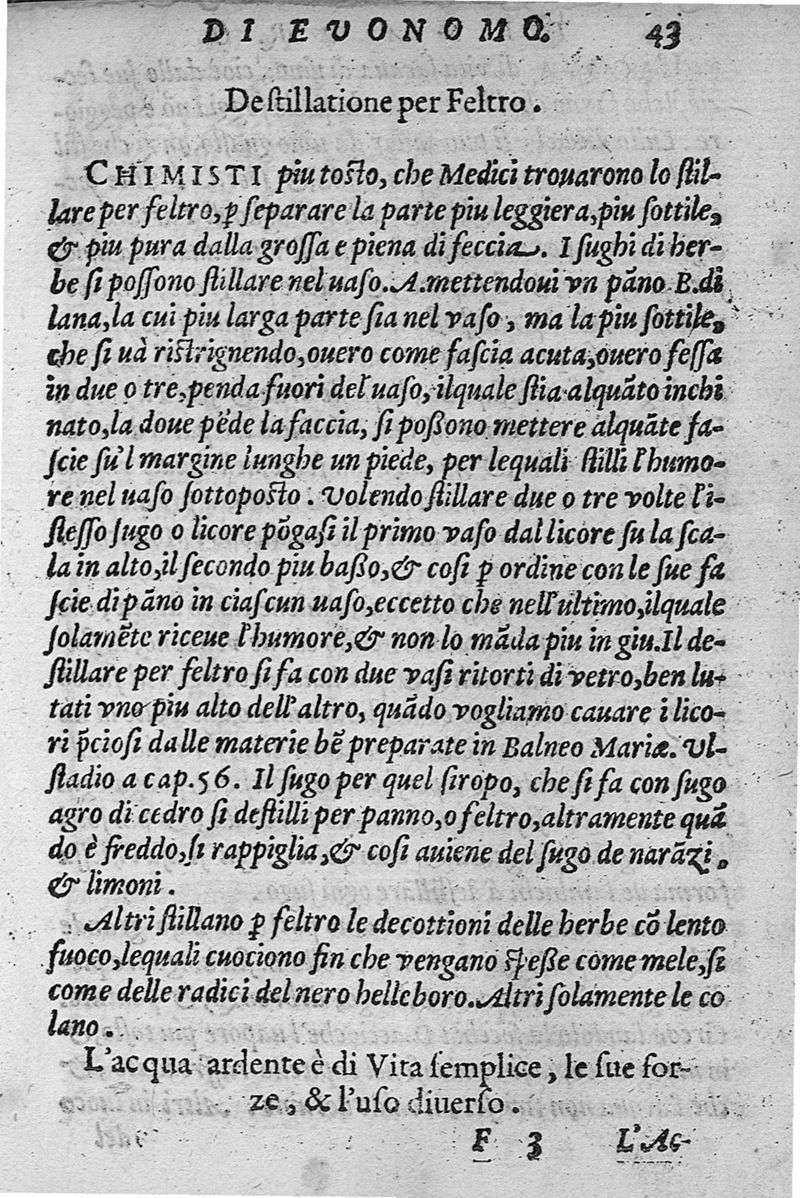 DI EVONOMO. 43
Deſtillatione per Feltro.
CHIMISTI piu toſto, che Medici trouarono lo ſtil-
lare per feltro, p̱ ſeparare la parte piu leggiera, piu ſottile,
& piu pura dalla groſſa e piena di feccia. I ſughi di her-
be ſi poſſono ſtillare nel uaſo. A. mettendoui vn pãno B. di
lana, la cui piu larga parte ſia nel vaſo, ma la piu ſottile,
che ſi uà riſtrignendo, ouero come faſcia acuta, ouero feſſa
in due o tre, penda fuori del uaſo, ilquale ſtia alquãto inchi
nato, la doue pẽde la faccia, ſi poßono mettere alquãte fa-
ſcie ſu'l margine lunghe un piede, per lequali ſtilli l'humo-
re nel uaſo ſottopoſto. Volendo ſtillare due o tre volte l'i-
ſteſſo ſugo o licore põgaſi il primo vaſo dal licore ſu la ſca-
la in alto, il ſecondo piu baßo, & coſi p̱ ordine con le ſue fa
ſcie di pãno in ciaſcun uaſo, eccetto che nell'ultimo, ilquale
ſolamẽte riceue l'humore, & non lo mãda piu in giu. Il de-
ſtillare per feltro ſi fa con due vaſi ritorti di vetro, ben lu-
tati vno piu alto dell'altro, quãdo vogliamo cauare i lico-
ri p̃cioſi dalle materie bẽ preparate in Balneo Mariæ. Vl-
ſtadio a cap. 56. Il ſugo per quel ſiropo, che ſi fa con ſugo
agro di cedro ſi deſtilli per panno, o feltro, altramente quã
do è freddo, ſi rappiglia, & coſi auiene del ſugo de narãzi,
& limoni.
Altri ſtillano p̱ feltro le decottioni delle herbe cõ lento
fuoco, lequali cuociono fin che vengano ſpeße come mele, ſi
come delle radici del nero helleboro. Altri ſolamente le co
lano.
L'acqua ardente è di Vita ſemplice, le ſue for-
ze, & l'uſo diuerſo.
F 3 L'Ac-